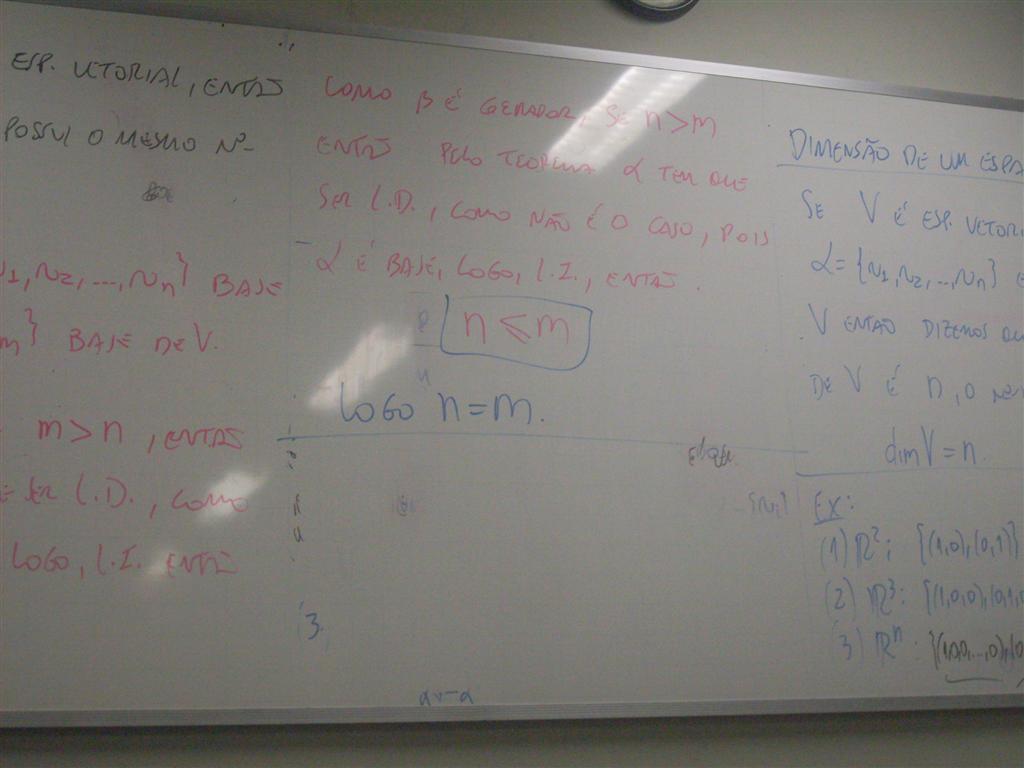 ESP. VETORIAL, ENTÃO
POSSUI O MESMO Nº
N1, N2, ..., Nn} BASE
m} BASE DE V.
m > n, ENTÃO
E SER L.D., COMO
LOGO, L.I. ENTÃO
COMO β É GERADOR, SE n > m
ENTÃO PELO TEOREMA α TEM QUE
SER L.D., COMO NÃO É O CASO, POIS
α É BASE, LOGO, L.I., ENTÃO.
n ≤ m
LOGO n = m.
3.
DIMENSÃO DE UM ESPA
SE V É ESP. VETORI
α = {N1, N2, ..., Nn} E
V ENTÃO DIZEMOS QU
DE V É n, O
dim V = n.
EX:
(1) ℝ²: {(1,0), (0,1)}
(2) ℝ³: {(1,0,0), (0,1,0
(3) ℝⁿ: {(1,0,0,...,0), (0